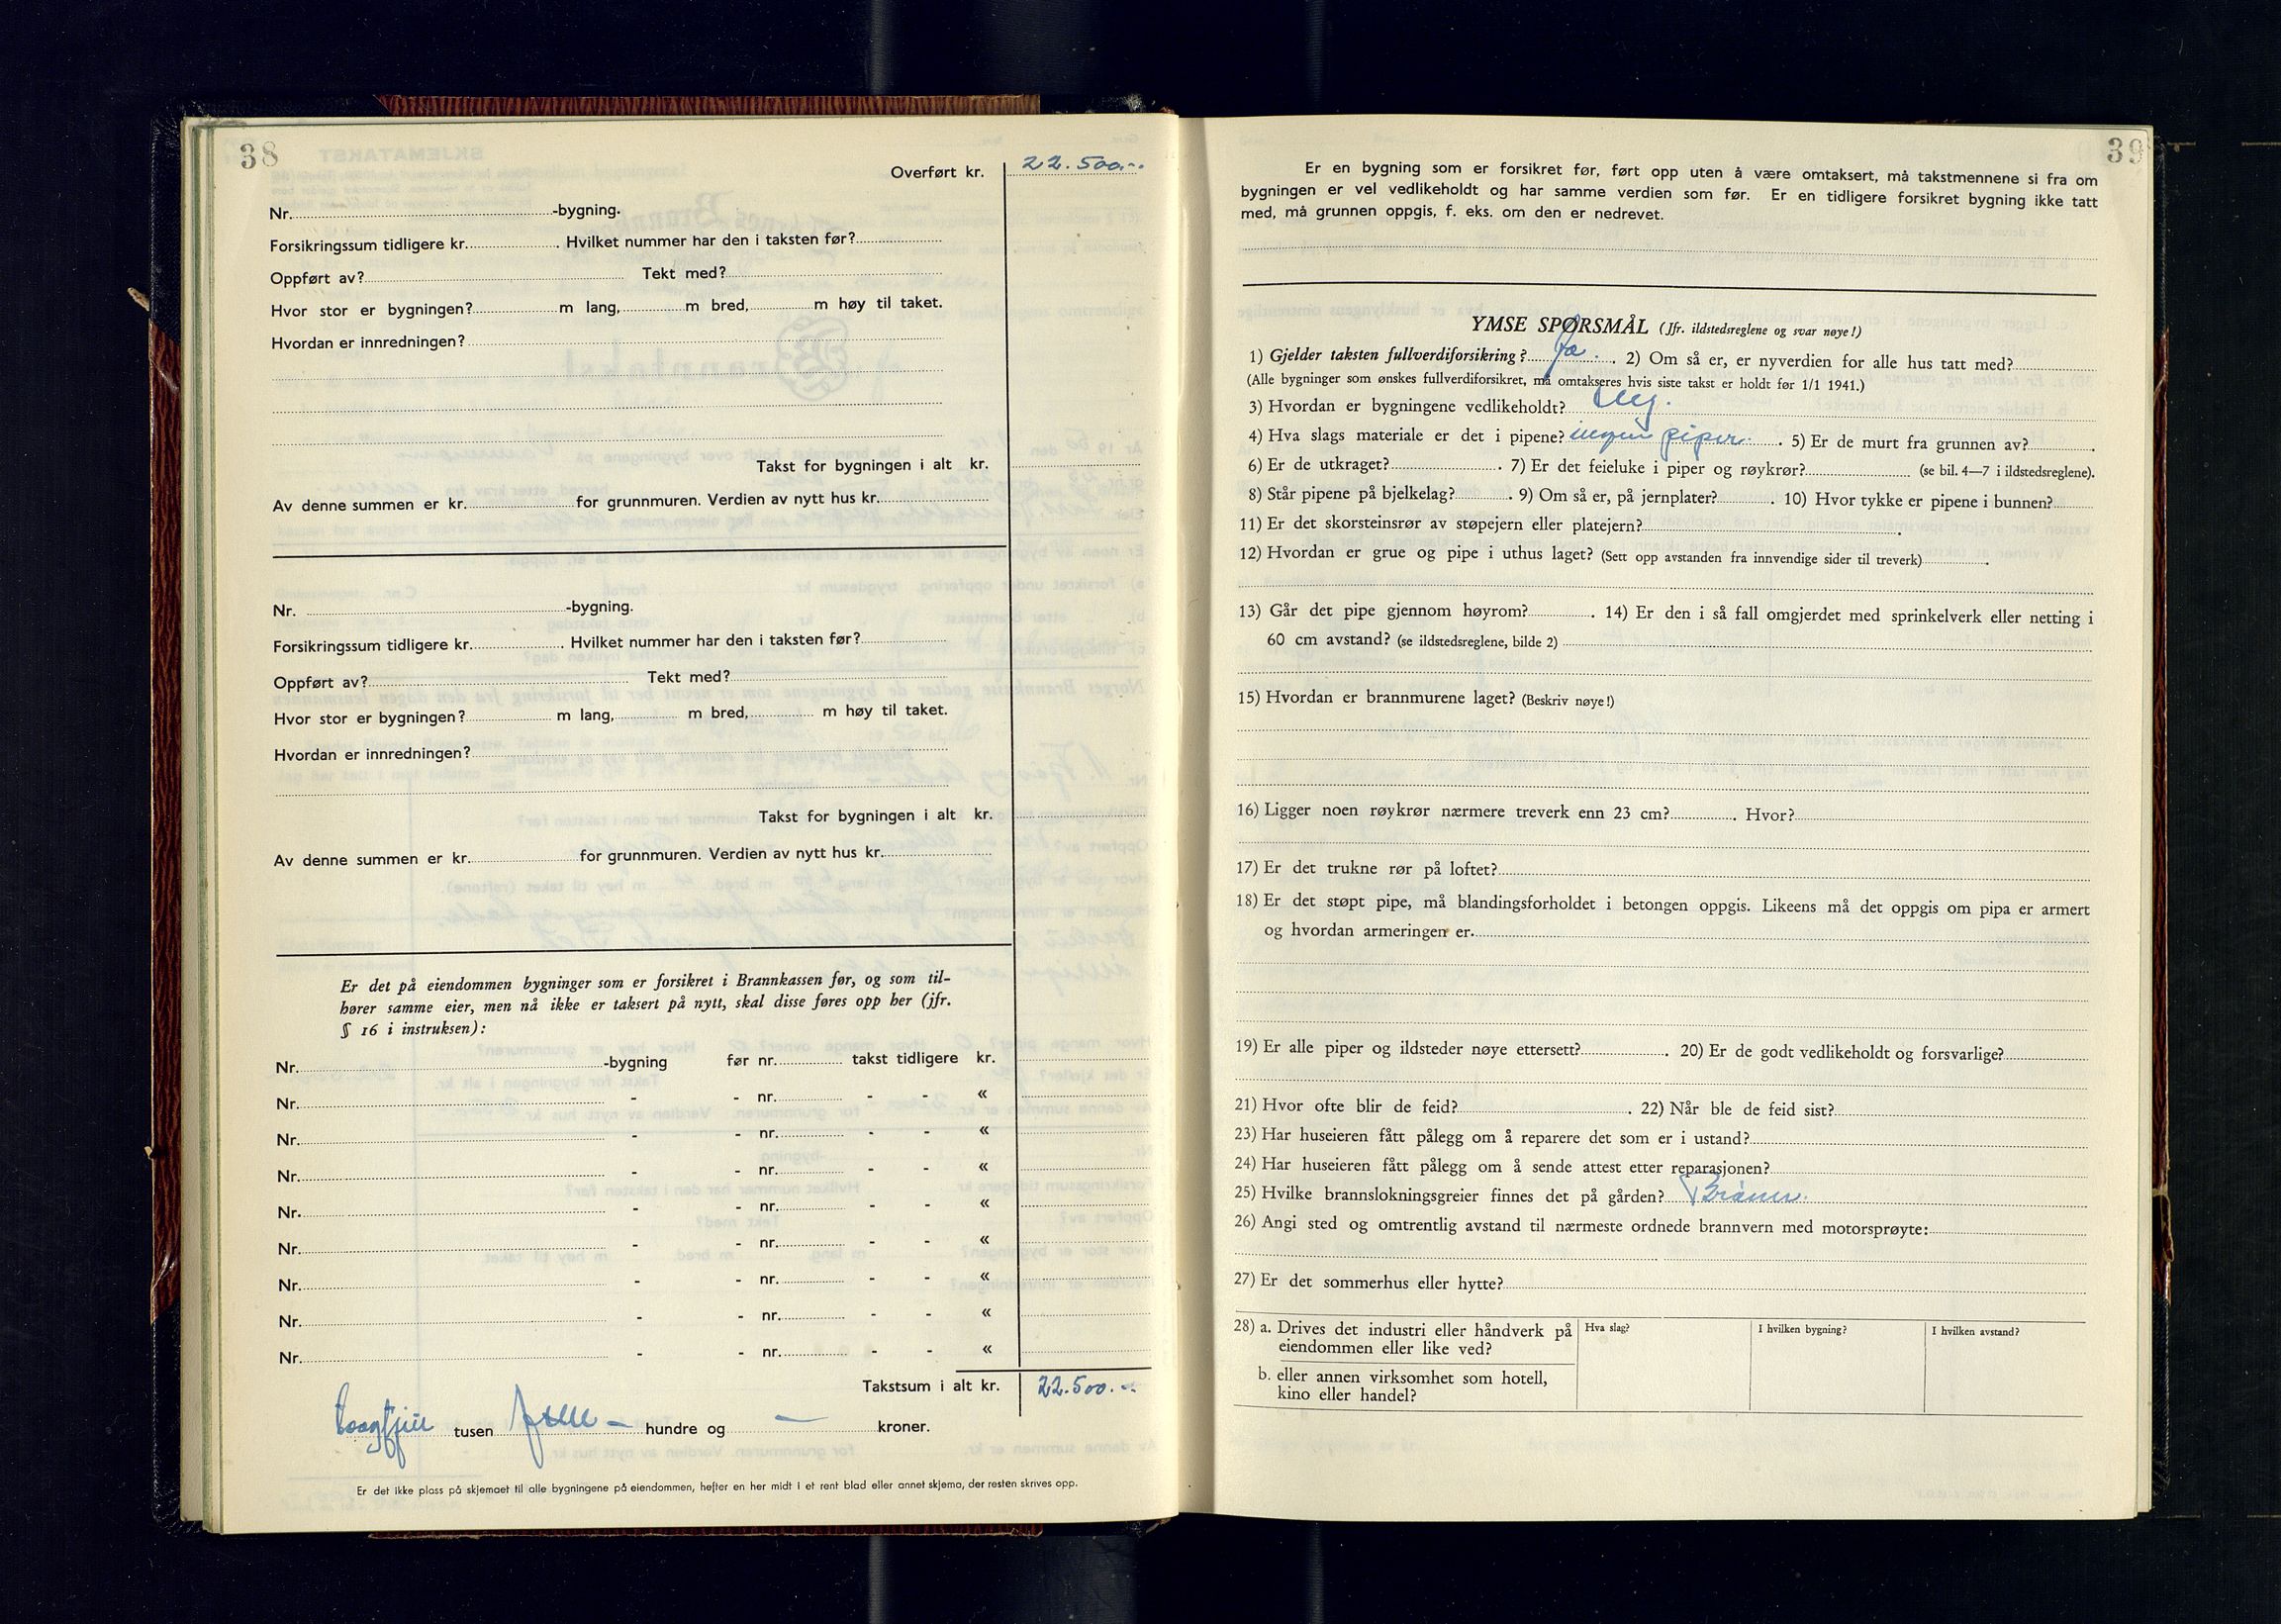 38
Overført kr. 22.500.--
Nr. -bygning.
Forsikringssum tidligere kr. . Hvilket nummer har den i taksten før?
Oppført av? Tekt med?
Hvor stor er bygningen? m lang, m bred, m høy til taket.
Hvordan er innredningen?
Takst for bygningen i alt kr.
Av denne summen er kr. for grunnmuren. Verdien av nytt hus kr.
Nr. -bygning.
Forsikringssum tidligere kr. . Hvilket nummer har den i taksten før?
Oppført av? Tekt med?
Hvor stor er bygningen? m lang, m bred, m høy til taket.
Hvordan er innredningen?
Takst for bygningen i alt kr.
Av denne summen er kr. for grunnmuren. Verdien av nytt hus kr.
Er det på eiendommen bygninger som er forsikret i Brannkassen før, og som til-
hører samme eier, men nå ikke er taksert på nytt, skal disse føres opp her (jfr.
§ 16 i instruksen):
Nr. -bygning før nr. takst tidligere kr.
Nr. - - nr. - - «
Nr. - - nr. - - «
Nr. - - nr. - - «
Nr. - - nr. - - «
Nr. - - nr. - - «
Nr. - - nr. - - «
Nr. - - nr. - - «
Nr. - - nr. - - «
Takstsum i alt kr. 22.500.--
tusen fem — hundre og — kroner.
Er det ikke plass på skjemaet til alle bygningene på eiendommen, hefter en her midt i et rent blad eller annet skjema, der resten skrives opp.
39
Er en bygning som er forsikret før, ført opp uten å være omtaksert, må takstmennene si fra om
bygningen er vel vedlikeholdt og har samme verdien som før. Er en tidligere forsikret bygning ikke tatt
med, må grunnen oppgis, f. eks. om den er nedrevet.
YMSE SPØRSMÅL (Jfr. ildstedsreglene og svar nøye!)
1) Gjelder taksten fullverdiforsikring? Ja. . 2) Om så er, er nyverdien for alle hus tatt med?
(Alle bygninger som ønskes fullverdiforsikret, må omtakseres hvis siste takst er holdt før 1/1 1941.)
3) Hvordan er bygningene vedlikeholdt?
4) Hva slags materiale er det i pipene? ingen piper. . 5) Er de murt fra grunnen av? .
6) Er de utkraget? . 7) Er det feieluke i piper og røykrør? (se bil. 4—7 i ildstedsreglene).
8) Står pipene på bjelkelag? . 9) Om så er, på jernplater? . 10) Hvor tykke er pipene i bunnen?
11) Er det skorsteinsrør av støpejern eller platejern? .
12) Hvordan er grue og pipe i uthus laget? (Sett opp avstanden fra innvendige sider til treverk) .
13) Går det pipe gjennom høyrom? . 14) Er den i så fall omgjerdet med sprinkelverk eller netting i
60 cm avstand? (se ildstedsreglene, bilde 2)
15) Hvordan er brannmurene laget? (Beskriv nøye!)
16) Ligger noen røykrør nærmere treverk enn 23 cm? . Hvor?
17) Er det trukne rør på loftet?
18) Er det støpt pipe, må blandingsforholdet i betongen oppgis. Likeens må det oppgis om pipa er armert
og hvordan armeringen er.
19) Er alle piper og ildsteder nøye ettersett? . 20) Er de godt vedlikeholdt og forsvarlige?
21) Hvor ofte blir de feid? . 22) Når ble de feid sist?
23) Har huseieren fått pålegg om å reparere det som er i ustand?
24) Har huseieren fått pålegg om å sende attest etter reparasjonen?
25) Hvilke brannslokningsgreier finnes det på gården? Brønn.
26) Angi sted og omtrentlig avstand til nærmeste ordnede brannvern med motorsprøyte:
27) Er det sommerhus eller hytte?
28) a. Drives det industri eller håndverk på Hva slag? I hvilken bygning? I hvilken avstand?
eiendommen eller like ved?
b. eller annen virksomhet som hotell,
kino eller handel?